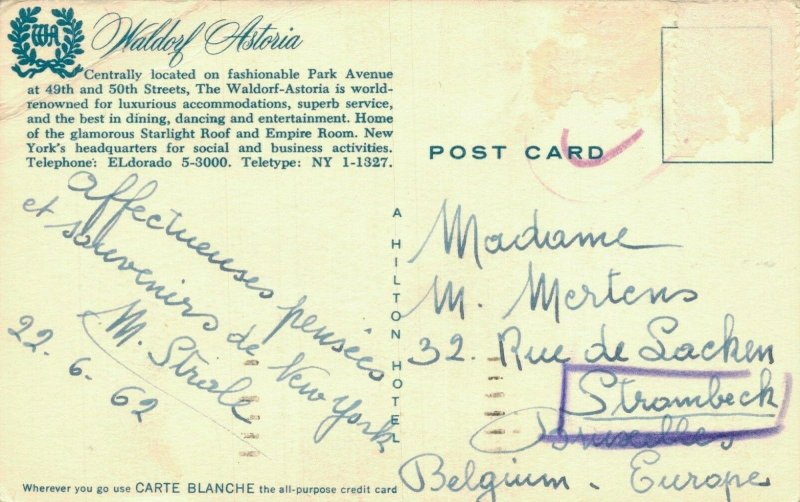 WA
Waldorf Astoria
Centrally located on fashionable Park Avenue
at 49th and 50th Streets, The Waldorf-Astoria is world-
renowned for luxurious accommodations, superb service,
and the best in dining, dancing and entertainment. Home
of the glamorous Starlight Roof and Empire Room. New
York's headquarters for social and business activities.
Telephone: ELdorado 5-3000. Teletype: NY 1-1327.
affectueuses pensées
et souvenirs de New York
M. Strale
22. 6. 62
Wherever you go use CARTE BLANCHE the all-purpose credit card
A HILTON HOTEL
POST CARD
Madame
M. Mertens
32. Rue de Lacken
Strombeck
Bruxelles
Belgium. Europe